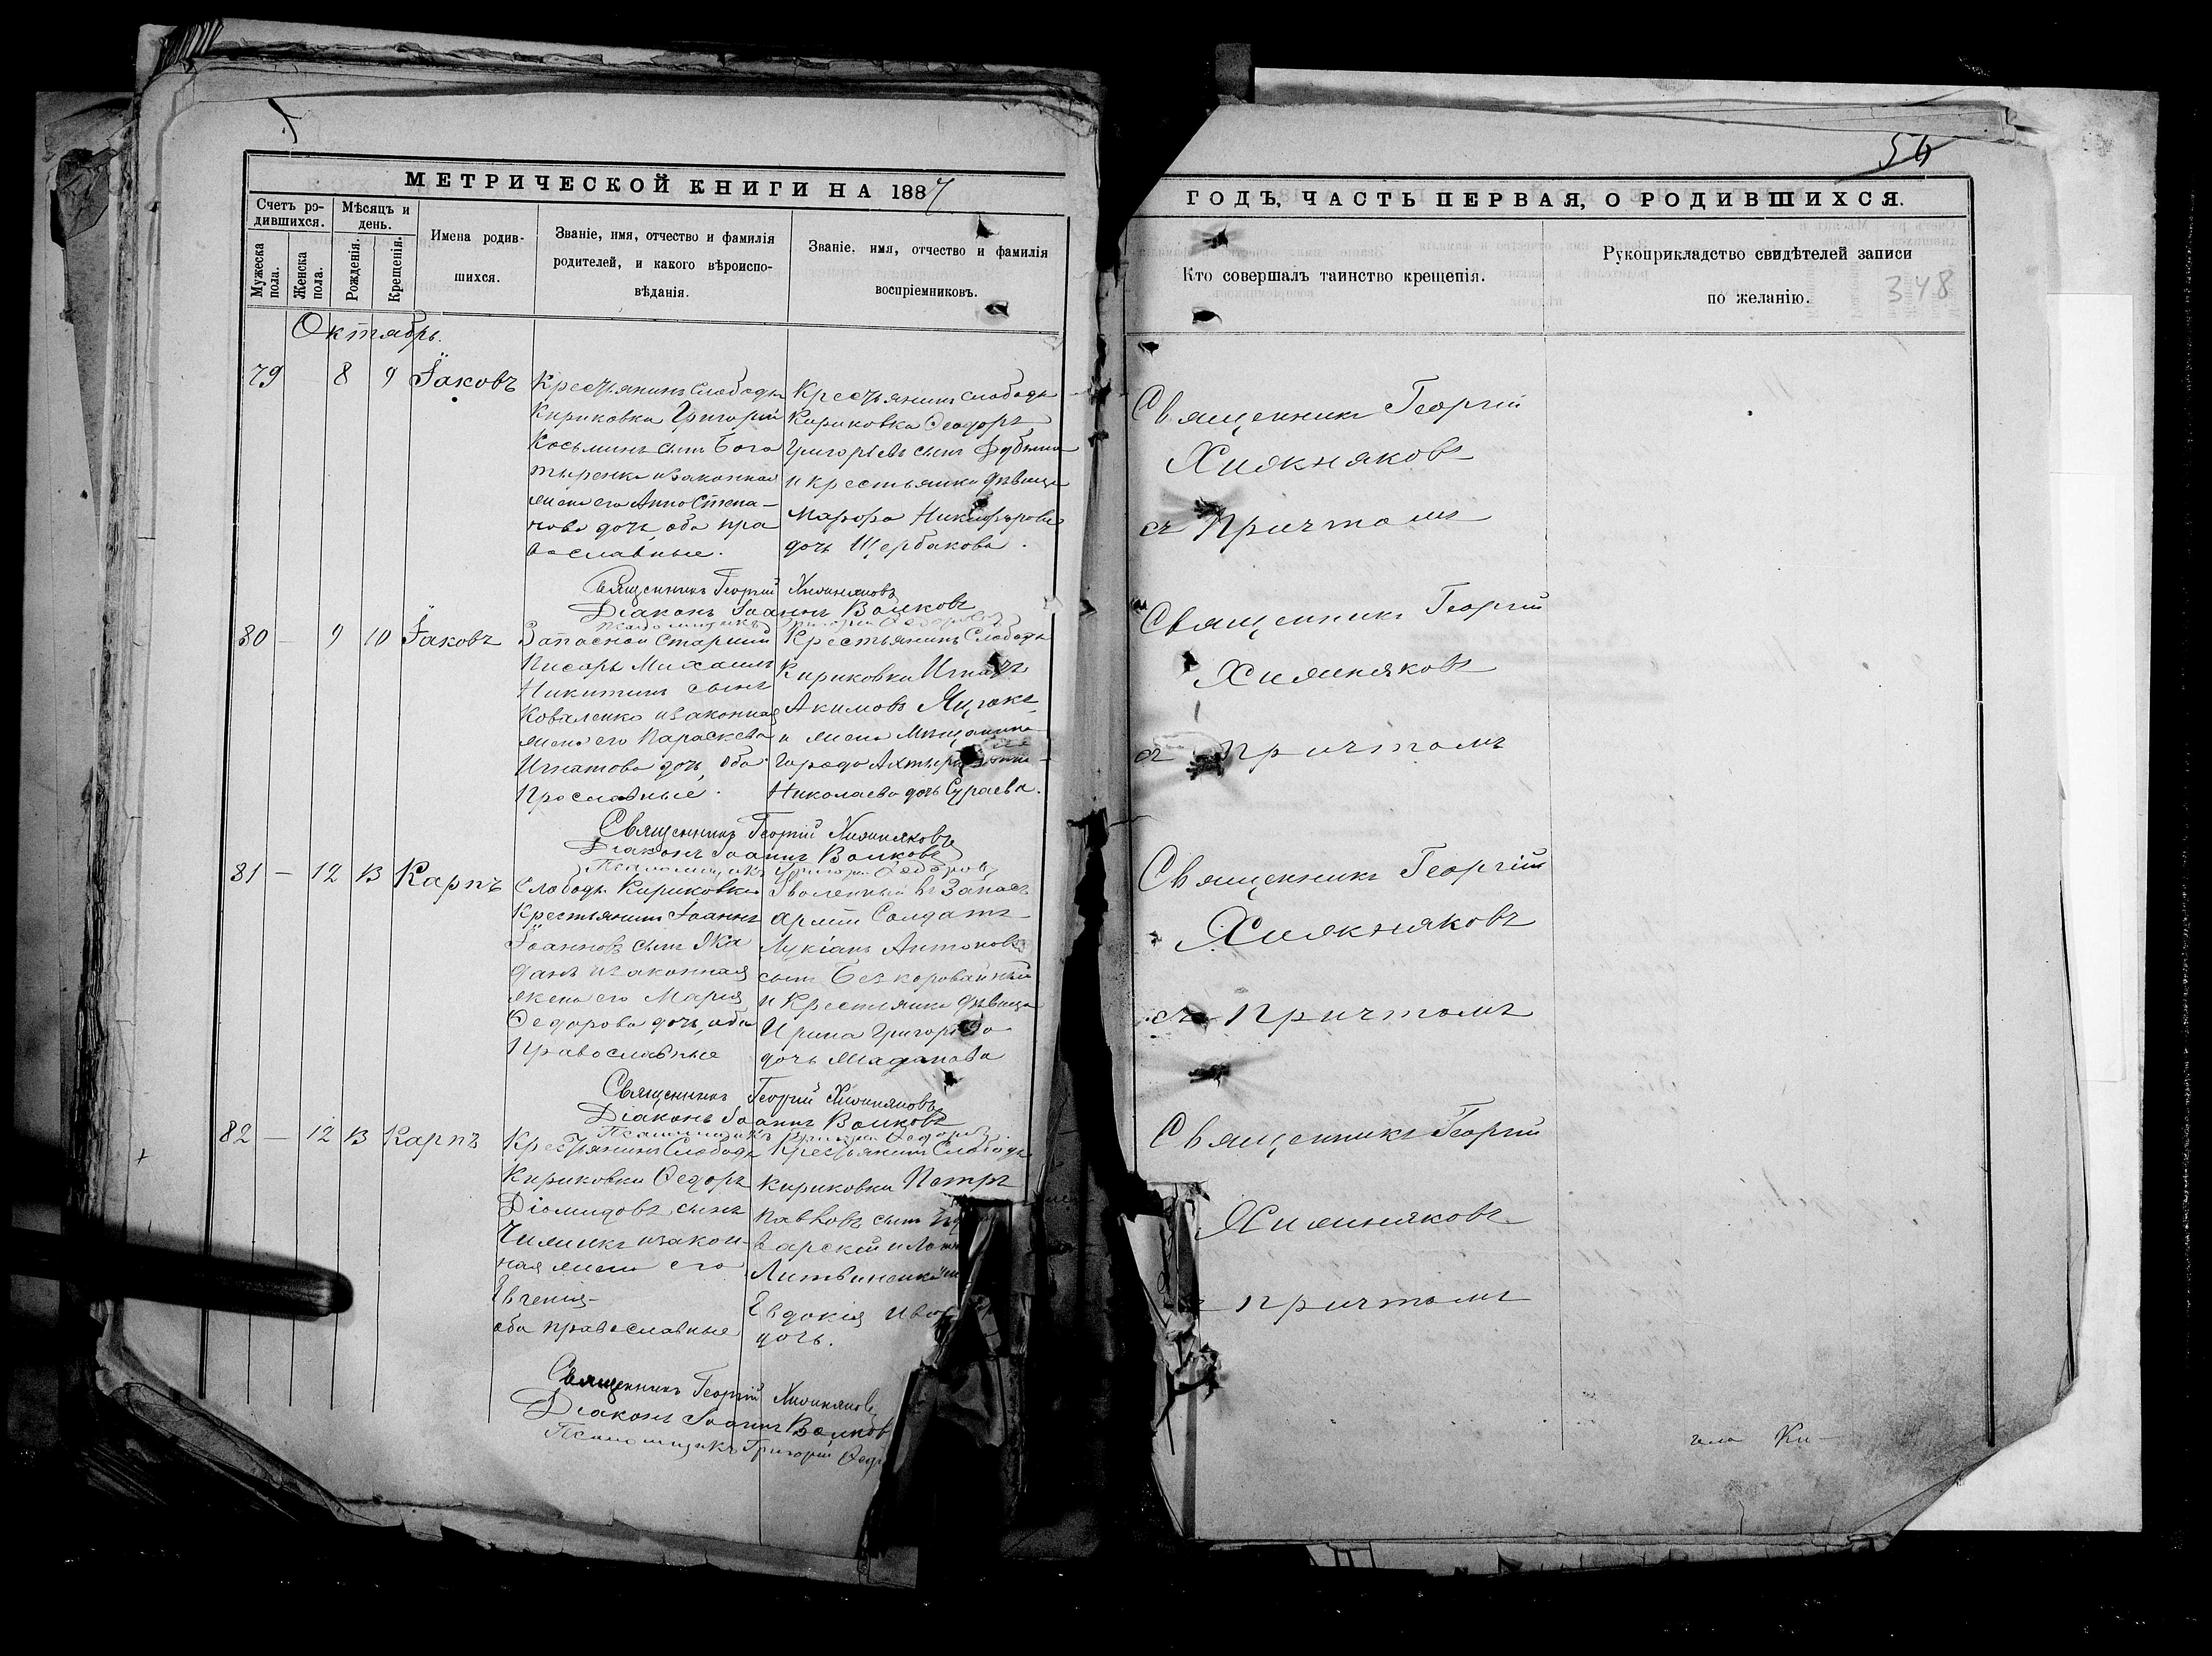 МЕТРИЧЕСКОЙ КНИГИ НА 1887
Счетъ ро-
дившихся.
Мужеска
пола.
Женска
пола.
Мѣсяцъ и
день.
Рожденія.
Крещенія.
Имена родив-
шихся.
Званіе, имя, отчество и фамилія
родителей, и какого вѣроиспо-
вѣданія.
Званіе. имя, отчество и фамилія
воспріемниковъ.
Октябрь.
79 8 9 Іаковъ
Крестьянинъ Слободы
Кириковки Григорій
Косьминъ сынъ Бога
тыренко и законная
жена его Анна Степа-
нова дочь, оба пра
вославные.
Крестьянинъ слободы
Кириковки Ѳеодоръ
Григоріевъ сынъ
и крестьянка дѣвица
Марфа Никифорова
дочь Щербакова.
Священникъ Георгій Хижняковъ
Діаконъ Іоаннъ Волковъ
Псаломщикъ Григорій Ѳедоровъ
80 — 9 10 Іаковъ
Запасной Старшій
Писарь Михаилъ
Никитинъ сынъ
Коваленко и законная
жена его Параскева
Игнатова дочь, оба
Прославные.
Крестьянинъ Слободы
Кириковки
Акимовъ
и жена Мѣщанина
города
Николаева дочь Сураева.
Священникъ Георгій Хижняковъ
Діаконъ Іоаннъ Волковъ
Псаломщикъ Григорій Ѳедоровъ
81 — 12 13 Карпъ
Слободы Кириковки
Крестьянинъ Іоаннъ
Іоанновъ сынъ Жа
данъ и законная
жена его Марія
Ѳедорова дочь, оба
Православные
Уволенный въ Запасъ
арміи Солдатъ
Лукіанъ Антоновъ
сынъ Безкоровайный
и Крестьянка дѣвица
Ирина
дочь Жаданова
Священникъ Георгій Хижняковъ
Діаконъ Іоаннъ Волковъ
Псаломщикъ Григорій Ѳедоровъ
82 — 12 13 Карпъ
Крестьянинъ Слободы
Кириковки Ѳедоръ
Діомидовъ сынъ
Чижикъ и закон-
ная жена его
Евгенія
оба православные
Крестьянинъ Слободы
Кириковки Петръ
Павловъ сынъ
Евдокія
дочь.
Священникъ Георгій Хижняковъ
Діаконъ Іоаннъ Волковъ
Псаломщикъ Григорій
56
ГОДЪ, ЧАСТЬ ПЕРВАЯ, О РОДИВШИХСЯ.
Кто совершалъ таинство крещенія.
Рукоприкладство свидѣтелей записи
по желанію.
348
Священникъ Георгій
Хижняковъ
съ Причтомъ
Священникъ Георгій
Хижняковъ
съ Причтомъ
Священникъ Георгій
Хижняковъ
съ Причтомъ
Священникъ Георгій
Хижняковъ
Причтомъ
Ки-